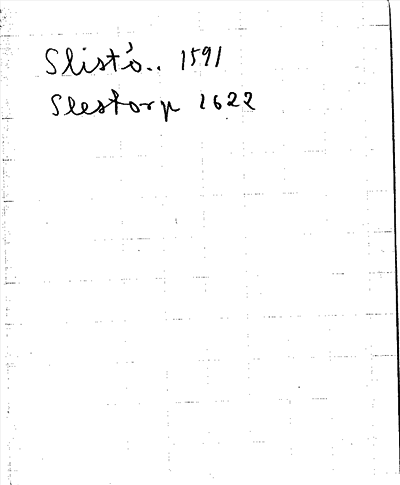 Slistó.. 1591
Slestorp 1622